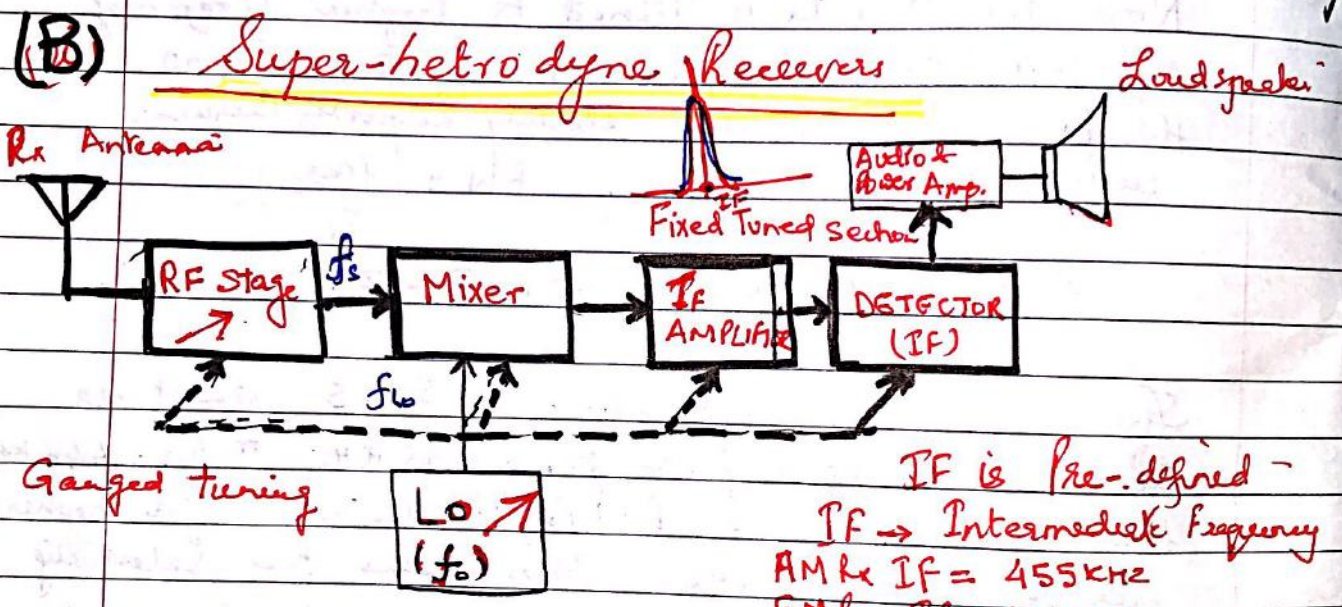 (B)
Super-hetrodyne Receivers
Loudspeaker
Rx Antenna
Audio &
Power Amp.
IF
Fixed Tuned Section
RF Stage
fs
Mixer
IF
AMPLIFIER
DETECTOR
(IF)
fLo
Ganged tuning
Lo
(fo)
IF is Pre-defined -
IF → Intermediate Frequency
AM Rx IF = 455 KHz